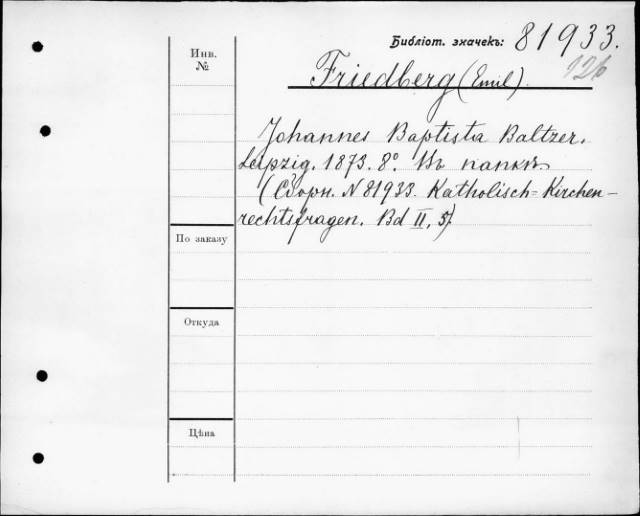 Библіот. значекъ: 81933.
126
Инв.
№
Friedberg (Emil).
Johannes Baptista Baltzer.
Leipzig. 1873. 8°. Въ папкѣ
(Сборн. N 81933. Katholisch=Kirchen-
rechtsfragen. Bd II, 5)
По заказу
Откуда
Цѣна